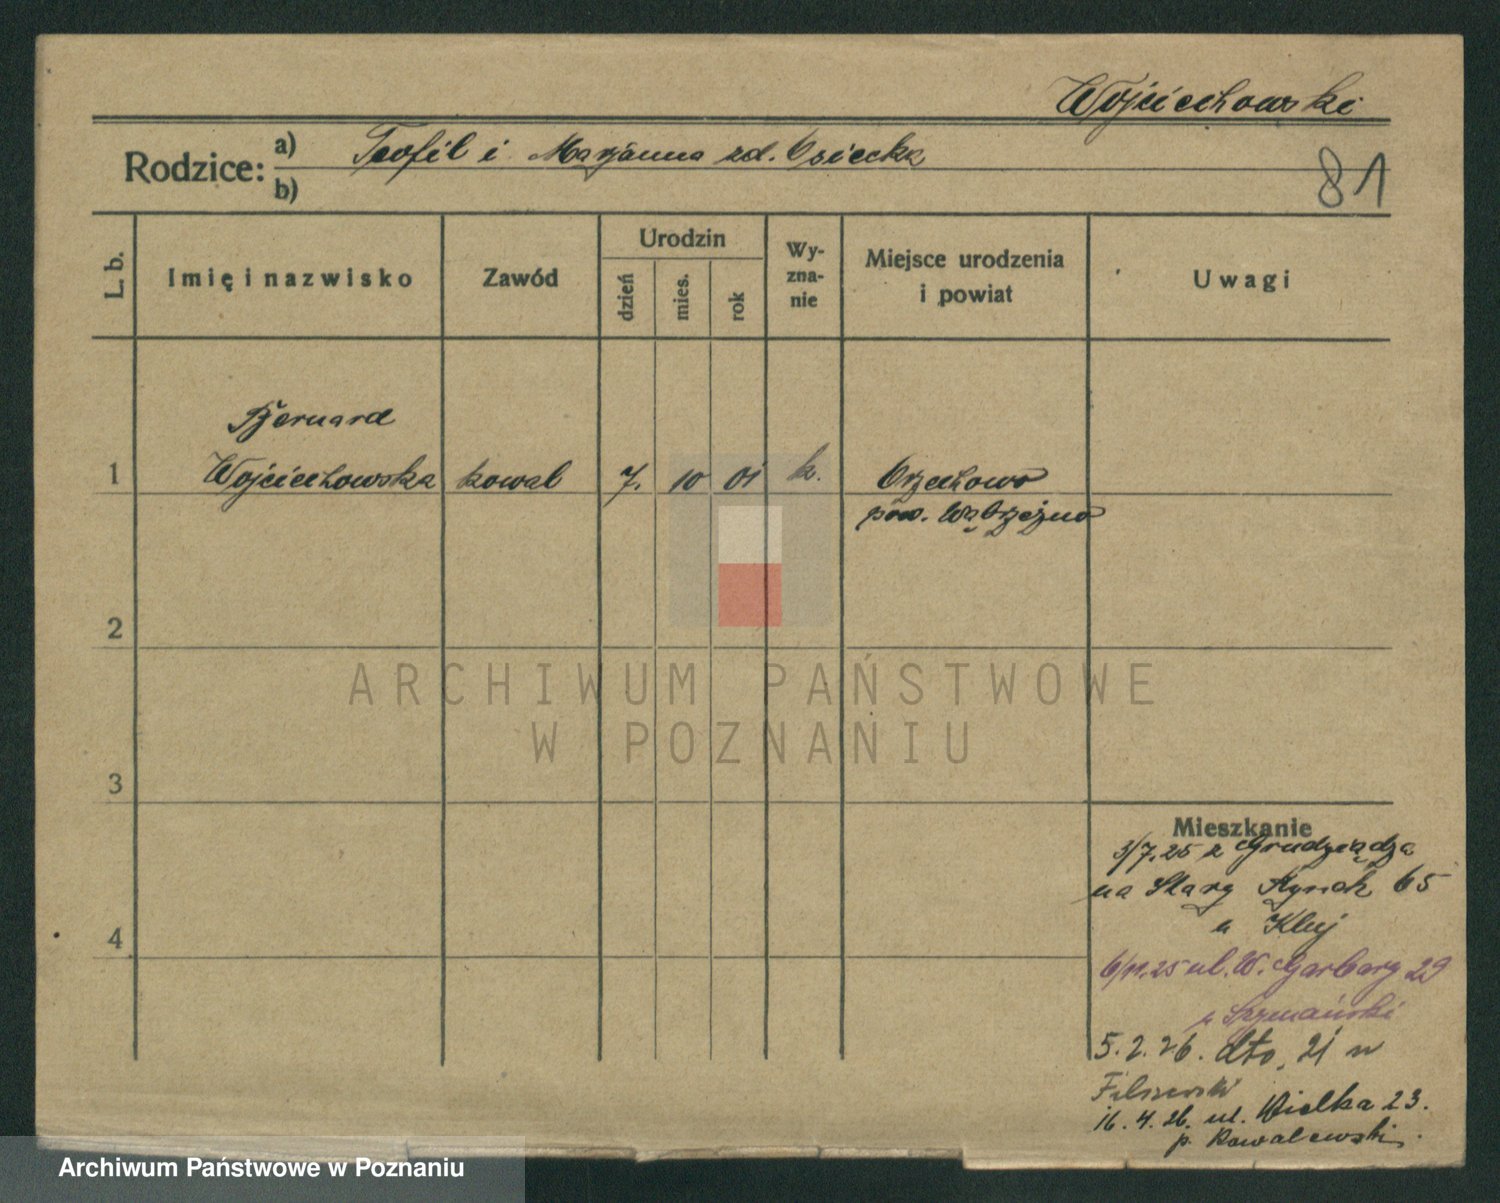 Wojciechowski
Rodzice: a) Teofil i Marjanna zd. Osiecka
b)
81
L. b.
Imię i nazwisko
Zawód
Urodzin
dzień
mies.
rok
Wy-
zna-
nie
Miejsce urodzenia
i powiat
Uwagi
Bernard
1 Wojciechowska kowal 7. 10 01 k. Orzechowo
pow. Wąbrzeźno
2
3
4
ARCHIWUM PAŃSTWOWE
W POZNANIU
Mieszkanie
3/7.25 z Grudziądza
na Stary Rynek 65
u Kluj
6/11.25 ul. W. Garbary 29
u Szymański
5.2.26. dto. 21 u
16.4.26. ul. Wielka 23.
p. Kowalewski.
Archiwum Państwowe w Poznaniu